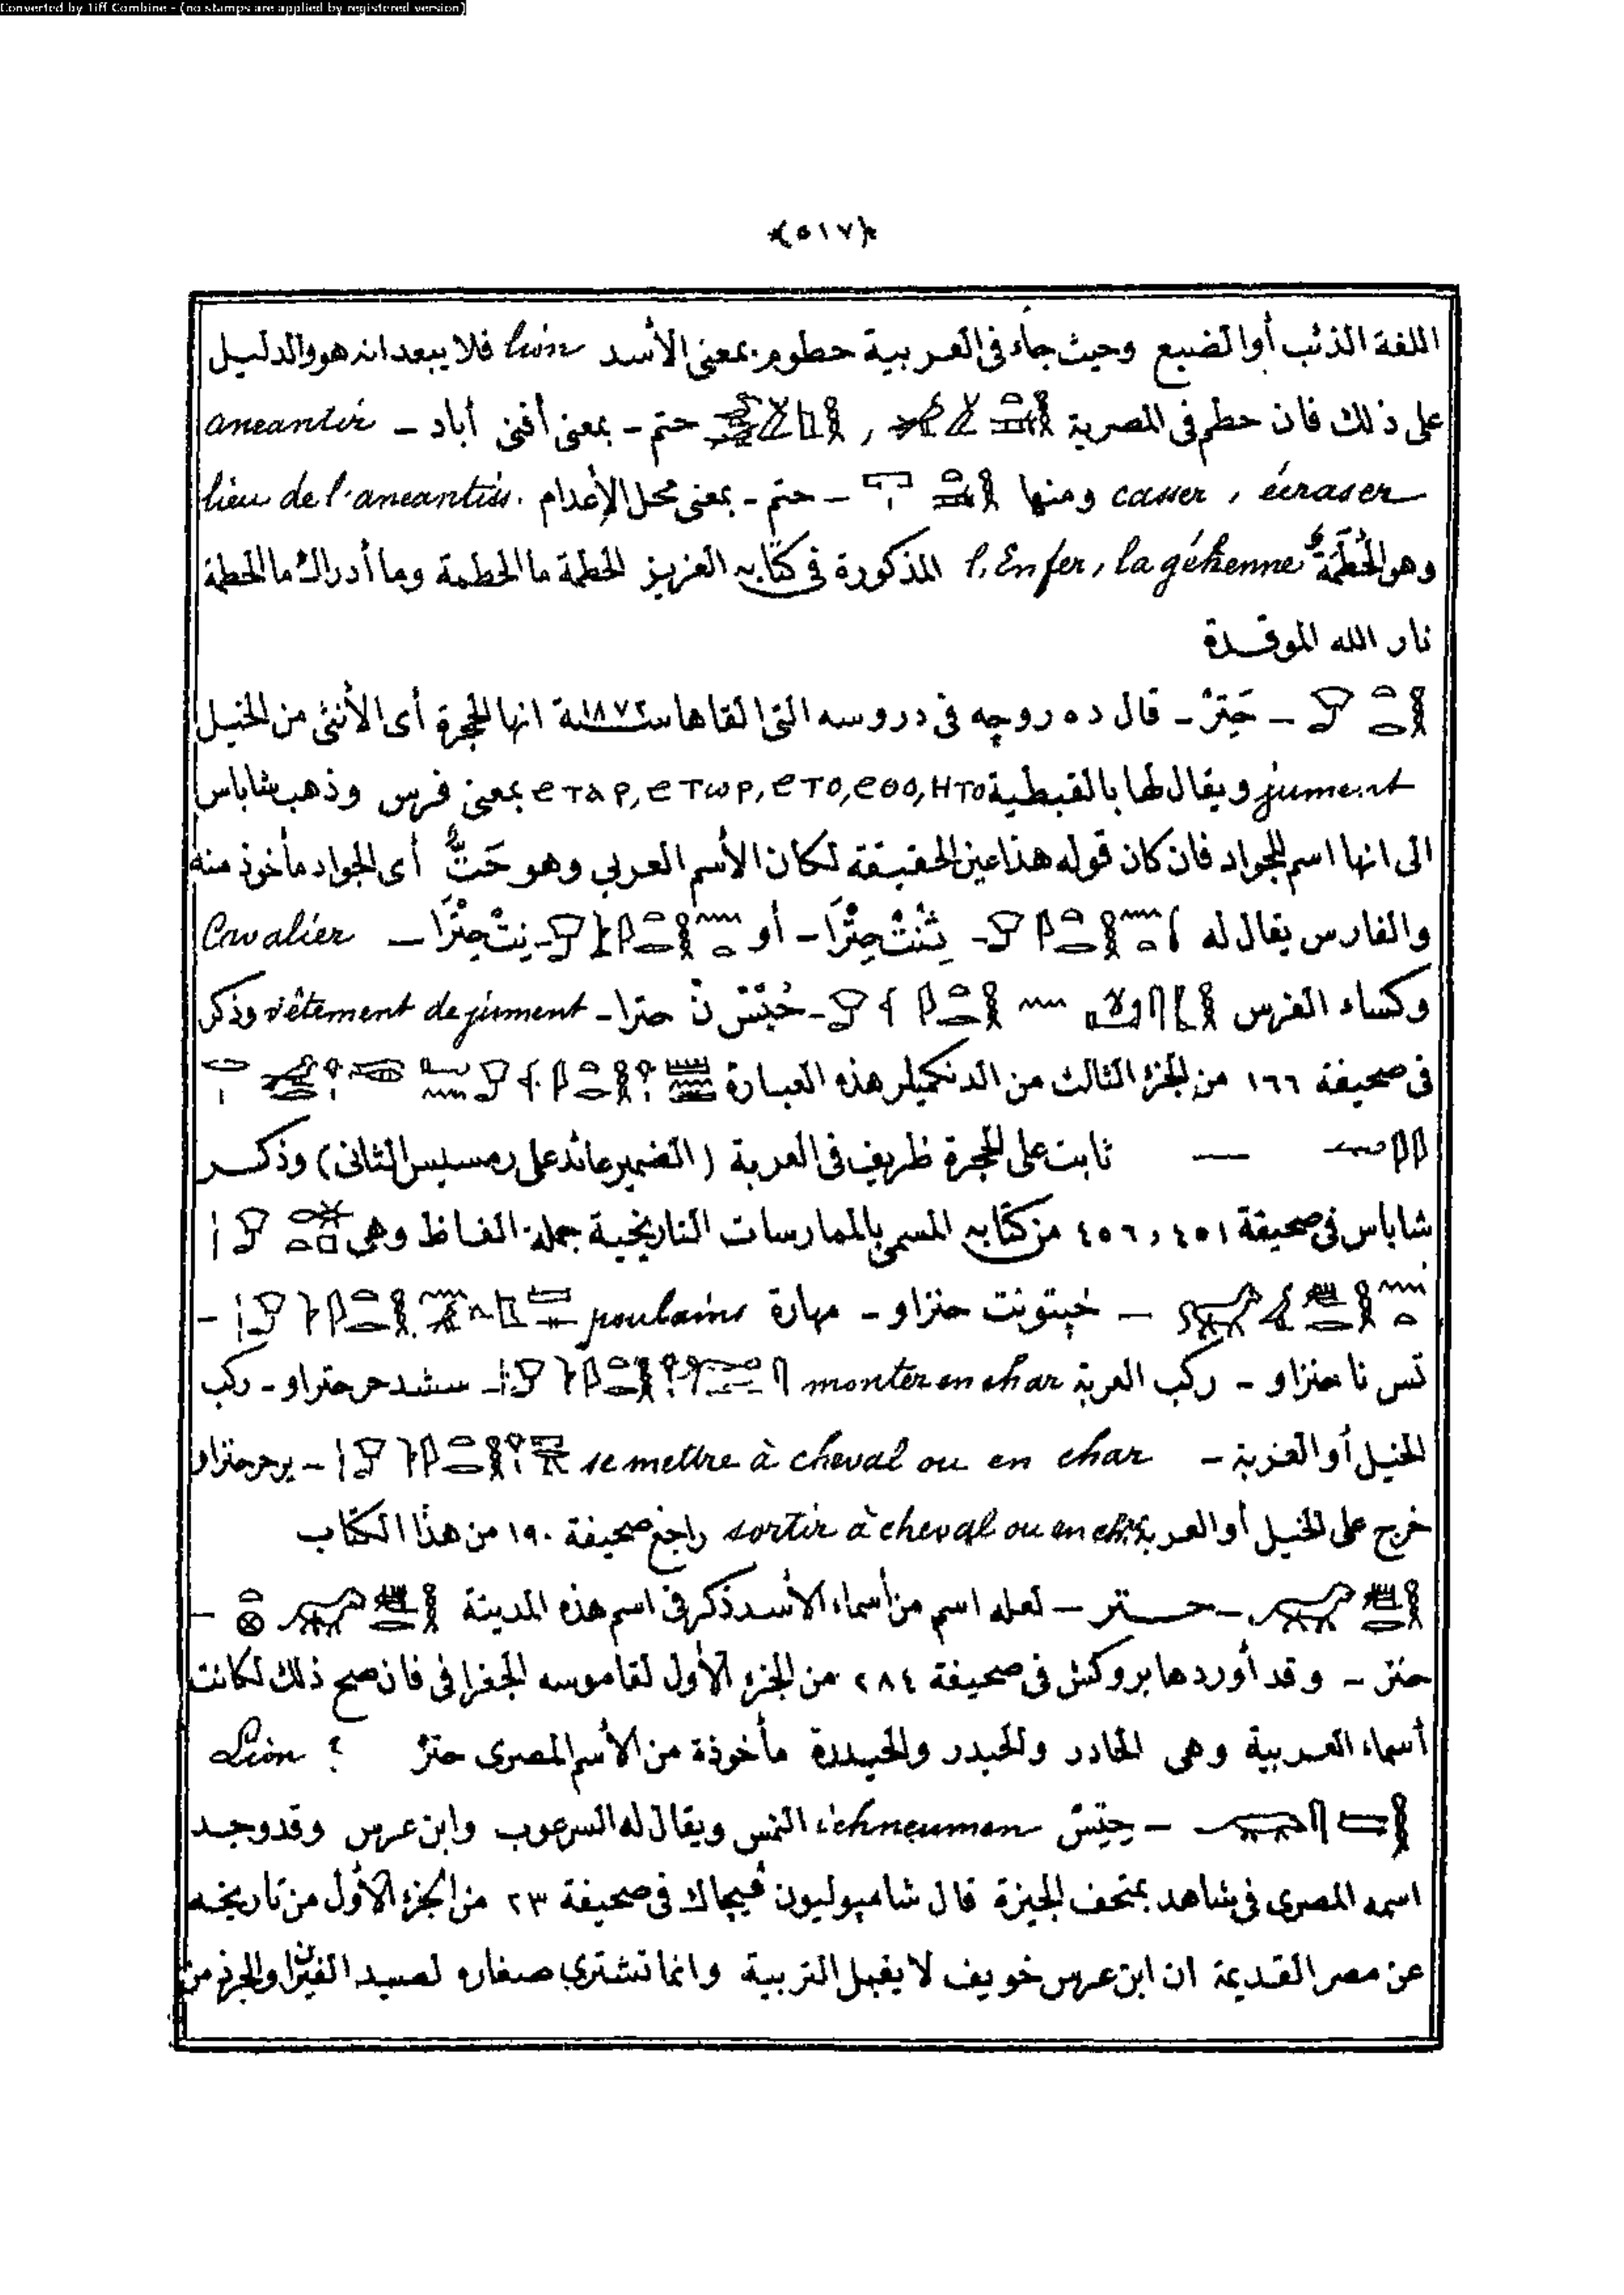 Converted by Tiff Combine - (no stamps are applied by registered version)
﴿٥١٧﴾
اللغة الذئب أوالضبع وحيث جاء فى العربية حطوم بمعنى الأسد lion فلا يبعد انه هو والدليل
على ذلك فان حطم فى المصرية , حتم - بمعنى أفنى أباد - aneantir
casser , écraser ومنها - حتم - بمعنى محل الإعدام lieu de l'aneantis.
وهو الحُطَمَةُ l'Enfer, la géhenne المذكورة فى كتابه العزيز الحطمة ما الحطمة وما أدراك ما الحطمة
نار الله الموقدة
- حَتِرْ - قال ده روچه فى دروسه التى القاها سنة ١٨٧٢ انها الحجرة أى الأنثى من الخيل
jument ويقال لها بالقبطية ϩⲧⲁⲣ, ϩⲧⲱⲣ, ϩⲧⲟ, ϩⲑⲟ, ⲏⲧⲟ بمعنى فرس وذهب شاباس
الى انها اسم للجواد فان كان قوله هذا عين الحقيقة لكان الأسم العربي وهو حَتٌّ أى الجواد مأخوذ منه
والفارس يقال له - ثِنْتْ حِتْرَا - أو - نِتْ حِتْرَا - Cavalier
وكساء الفرس - حُبْسْ نْ حترا - vêtement de jument وذكر
فى صحيفة ١٦٦ من الجزء الثالث من الدنكميلر هذه العبارة
— ثابت على الحجرة ظريف فى العربة (الضمير عائد على رمسيس الثانى) وذكر
شاباس فى صحيفة ٤٥١ , ٤٥٦ من كتابه المسمى بالممارسات التاريخية جملة الفاظ وهى
- خپتونت حتراو - مهارة poulains -
تس نا حتراو - ركب العربة monter en char - سشد حر حتراو - ركب
الخيل أو العربة - se mettre à cheval ou en char - پر حر حتراو
خرج على الخيل أو العربة sortir à cheval ou en char راجع صحيفة ١٩٠ من هذا الكتاب
- حتر - لعله اسم من أسماء الأسد ذكر فى اسم هذه المدينة -
حتر - وقد أوردها بروكش فى صحيفة ٢٨٤ من الجزء الأول لقاموسه الجغرافى فان صح ذلك لكانت
أسماء العربية وهى الخادر والحيدر والحيدرة مأخوذة من الأسم المصرى حتر ؟ Lion
- حِتِسْ ichneumon النمس ويقال له السرعوب وابن عرس وقد وجد
اسمه المصرى فى شاهد بمتحف الجيزة قال شامپوليون فيچاك فى صحيفة ٢٣ من الجزء الأول من تاريخه
عن مصر القديمة ان ابن عرس خويف لا يقبل التربية وانما تشترى صغاره لصيد الفيران والجرذ من